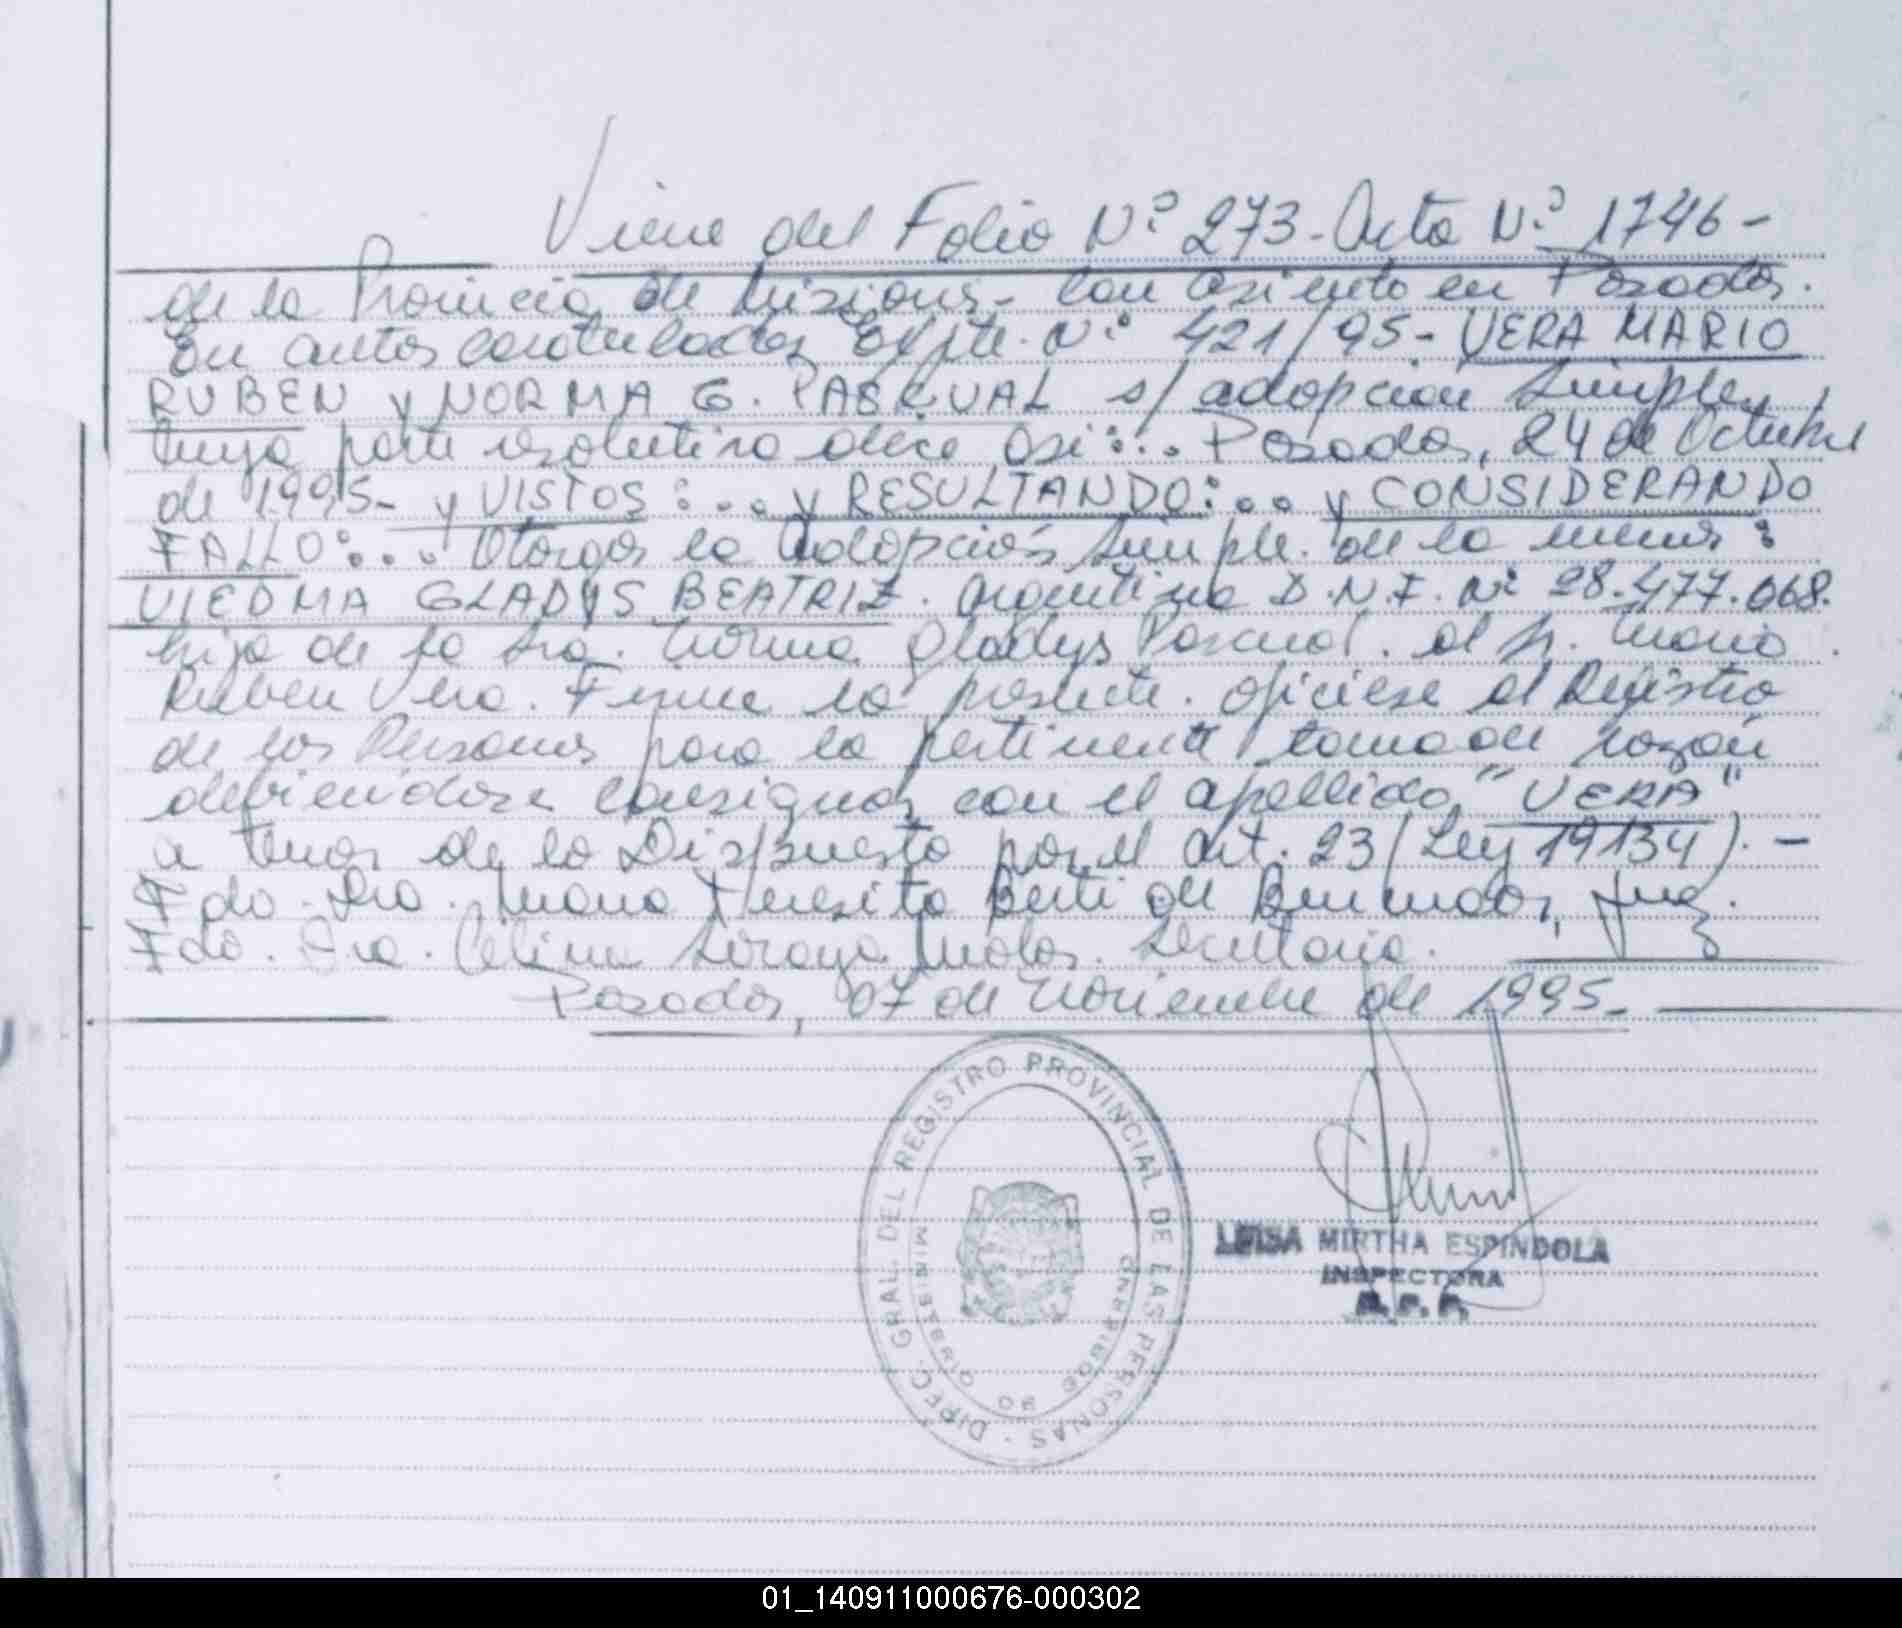 Viene del Folio Nº 273 - Acta Nº 1746 -
de la Provincia de Misiones - Con asiento en Posadas.
En autos caratulados Expte. Nº 421/95 - VERA MARIO
RUBEN y NORMA G. PASCUAL s/ adopción Simple,
Cuya parte resolutiva dice así:... Posadas, 24 de Octubre
de 1995 - y VISTOS:... y RESULTANDO:... y CONSIDERANDO
FALLO:... Otorgar la Adopción Simple. de la menor:
VIEDMA GLADYS BEATRIZ. argentina D.N.I. Nº 28.477.068.
hija de la Sra. Norma Gladys Pascual. al Sr. Mario
Ruben Vera. Firme la presente. ofíciese al Registro
de las Personas para la pertinente toma de razón
debiendose consignar con el apellido "VERA"
a tenor de lo Dispuesto por el art. 23 (Ley 19134). -
Fdo. Dra. Maria Teresita Berti de Juez.
Fdo. Dra. Celina Secretaria.
Posadas, 07 de Noviembre de 1995 -
DIREC. GRAL. DEL REGISTRO PROVINCIAL DE LAS PERSONAS -
MINISTERIO DE GOBIERNO
LUISA MIRTHA ESPINDOLA
INSPECTORA
R. P. P.
01_140911000676-000302